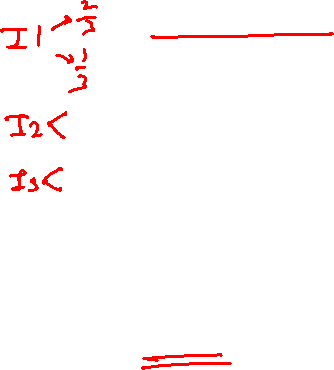 I1 → 2/3
→ 1/3
I2 <
I3 <